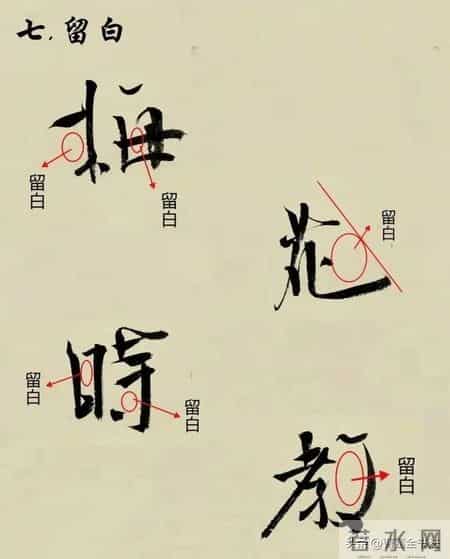 七.留白
梅
留白
留白
花
留白
時
留白
留白
教
留白
若水网